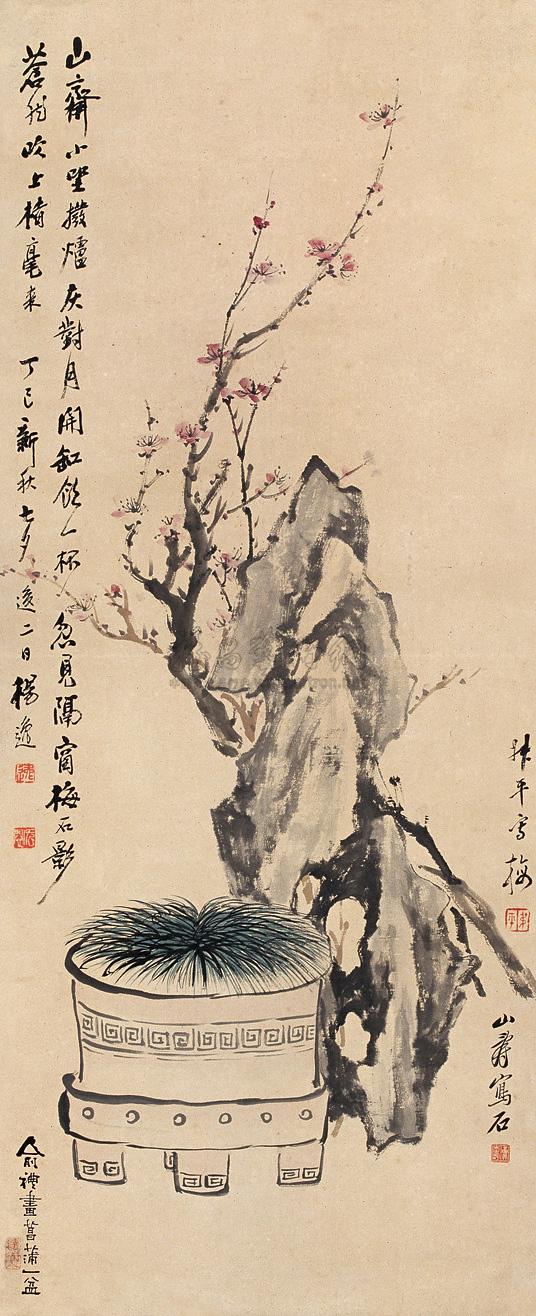 山齋小坐撥爐灰對月開缸飲一杯忽見隔窗梅石影
蒼龍吹上楮毫來 丁巳新秋七夕後二日楊逸
平寫梅
山壽寫石
俞禮畫菖蒲一盆